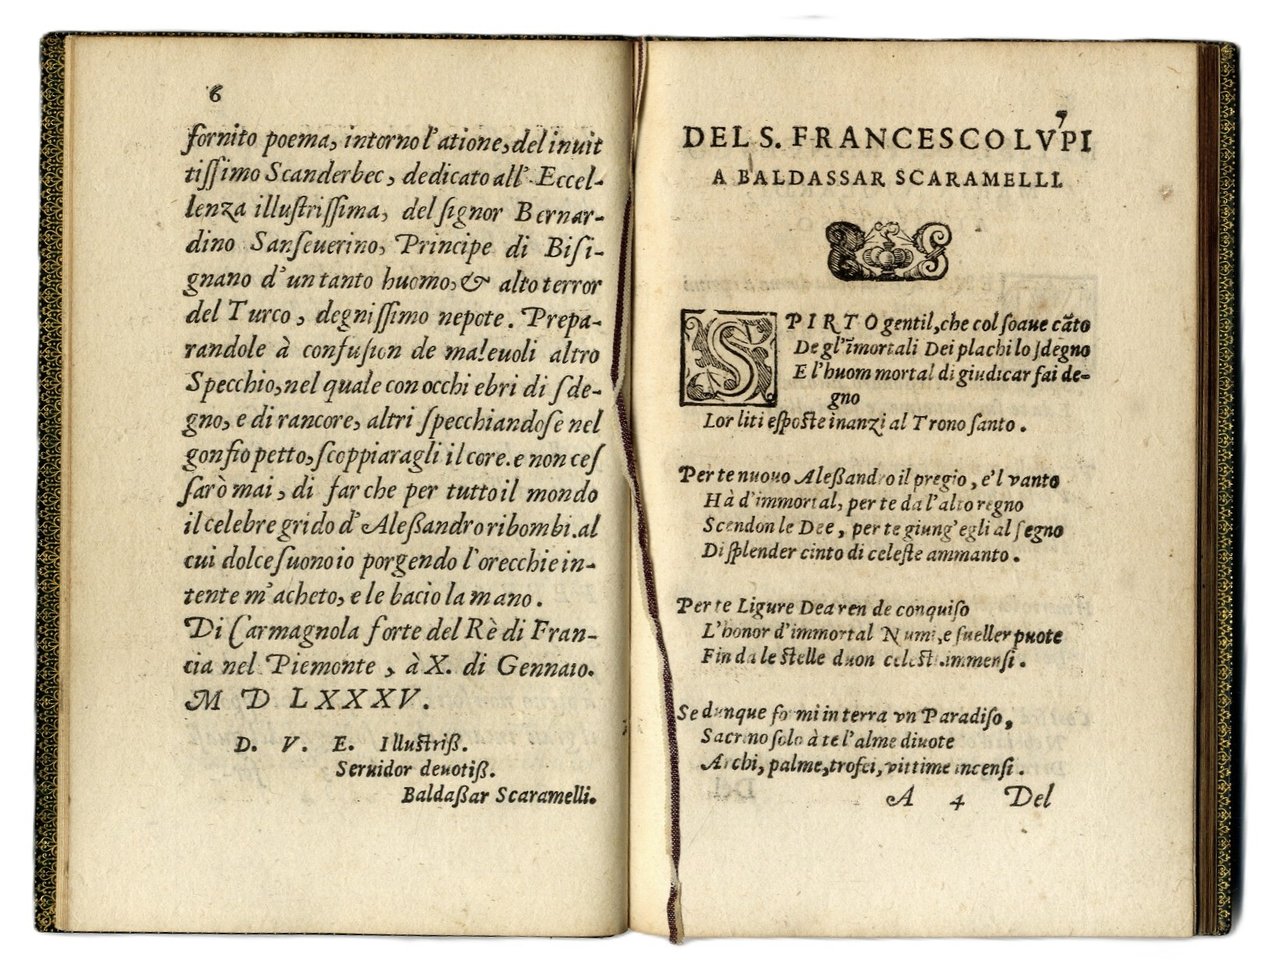 6
fornito poema, intorno l'atione, del inuit
tissimo Scanderbec, dedicato all' Eccel-
lenza illustrissima, del signor Bernar-
dino Sanseuerino, Principe di Bisi-
gnano d'un tanto huomo, & alto terror
del Turco, degnissimo nepote. Prepa-
randole à confusion de maleuoli altro
Specchio, nel quale con occhi ebri di sde-
gno, e di rancore, altri specchiandose nel
gonfio petto, scoppiaragli il core. e non ces
sarò mai, di far che per tutto il mondo
il celebre grido d'Aleßandro ribombi. al
cui dolce suono io porgendo l'orecchie in-
tente m'acheto, e le bacio la mano.
Di Carmagnola forte del Rè di Fran-
cia nel Piemonte, à X. di Gennaio.
M D LXXXV.
D. V. E. Illustriß.
Seruidor deuotiß.
Baldaßar Scaramelli.
7
DEL S. FRANCESCO LVPI
A BALDASSAR SCARAMELLI.
SPIRTO gentil, che col soaue cāto
De gl'īmortali Dei plachi lo sdegno
E l'huom mortal di giudicar fai de-
gno
Lor liti esposte inanzi al Trono santo.
Per te nuouo Aleßandro il pregio, e'l vanto
Hà d'immortal, per te da l'alto regno
Scendon le Dee, per te giung' egli al segno
Di splender cinto di celeste ammanto.
Per te Ligure Dea ren de conquiso
L'honor d'immortal Numi, e sueller puote
Fin da le stelle duon celesti immensi.
Se dunque formi in terra vn Paradiso,
Sacrino solo à te l'alme diuote
Archi, palme, trofei, vittime incensi.
A 4 Del